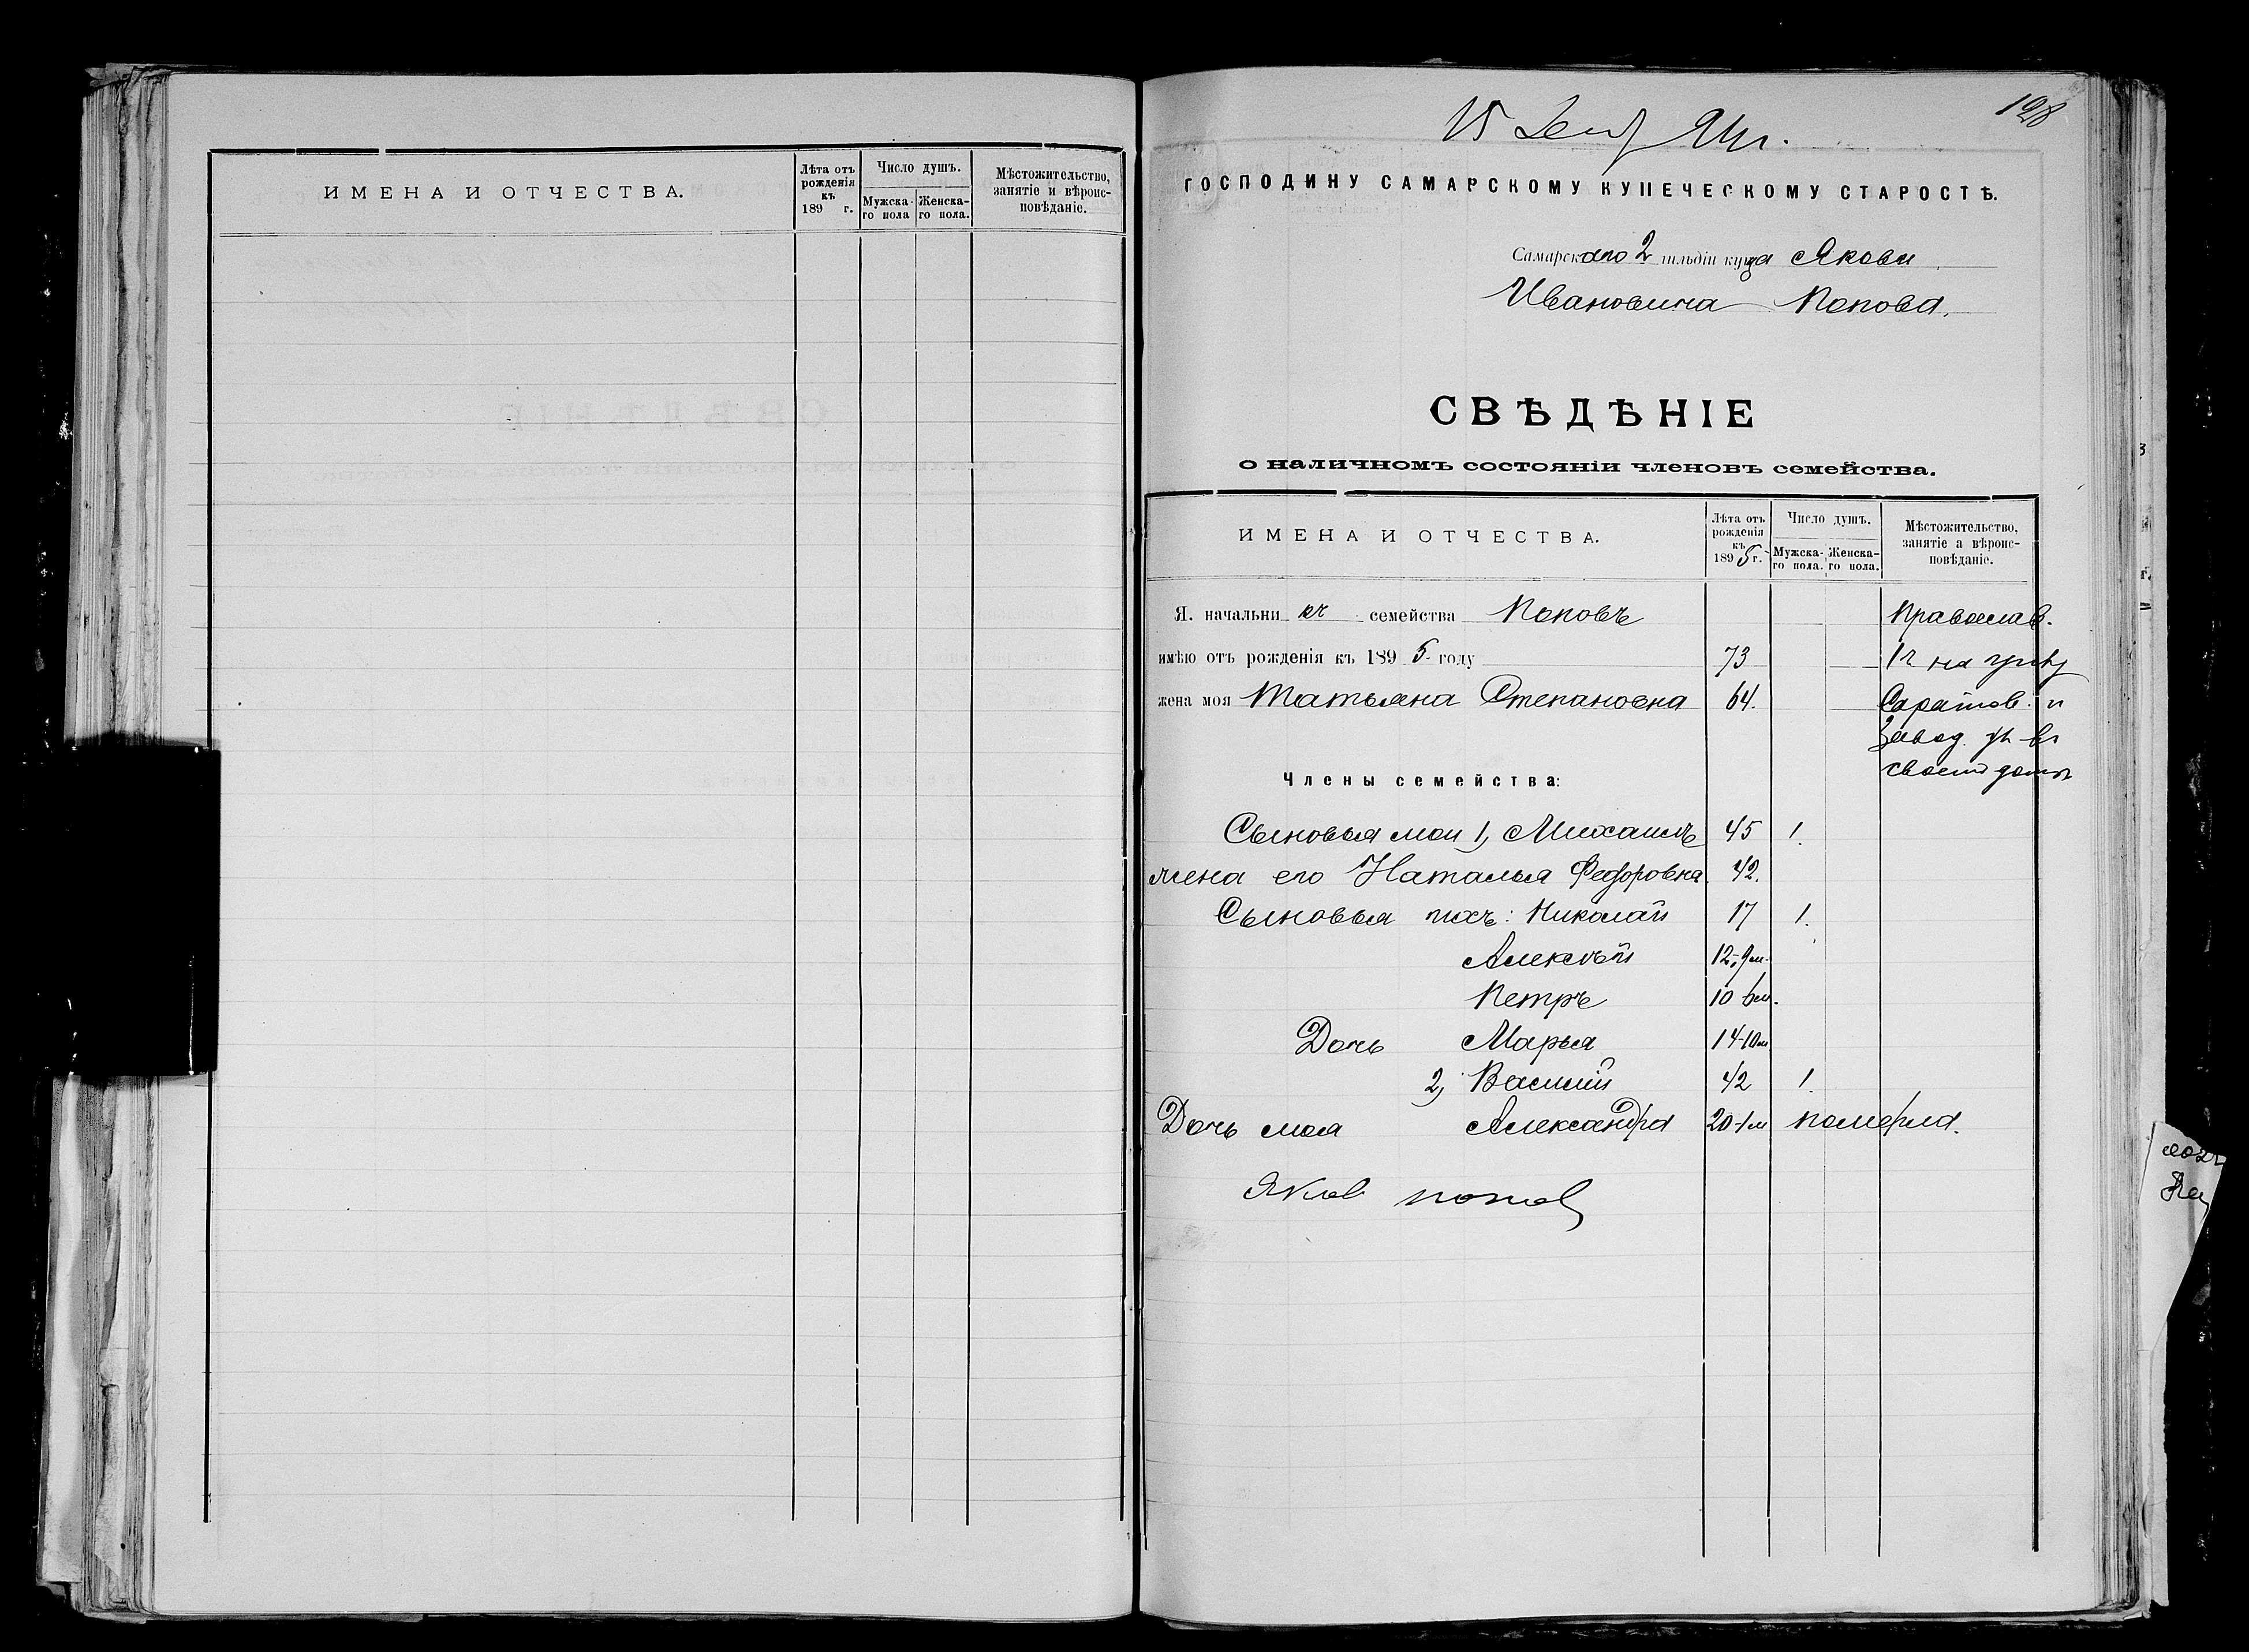 ИМЕНА И ОТЧЕСТВА.
Лѣта отъ рожденія къ 189 г.
Число душъ.
Мужска-го пола
Женска-го пола.
Мѣстожительство, занятіе и вѣроис-повѣданіе.
128
15 94 г.
ГОСПОДИНУ САМАРСКОМУ КУПЕЧЕСКОМУ СТАРОСТѢ.
Самарскаго 2 гильдіи купца Якова
Ивановича Попова.
СВѢДѢНІЕ
о наличномъ состояніи членовъ семейства.
ИМЕНА И ОТЧЕСТВА.
Лѣта отъ рожденія къ 1895 г.
Число душъ.
Мужска-го пола.
Женска-го пола.
Мѣстожительство, занятіе а вѣроис-повѣданіе.
Я. начальникъ семейства Поповъ Православ.
имѣю отъ рожденія къ 1895 году 73 на углу
жена моя Татьяна Степановна 64. Саратов. и
Завод. ул въ
своемъ домѣ
Члены семейства:
Сыновья мои 1, Михаилъ 45 1.
жена его Наталья Федоровна 42.
Сыновья ихъ: Николай 17 1.
Алексѣй 12-9 м.
Петръ 10 6 м.
Дочь Марья 14-10 м
2, Василий 42 1.
Дочь моя Александра 20-1 м померла.
Яков попов